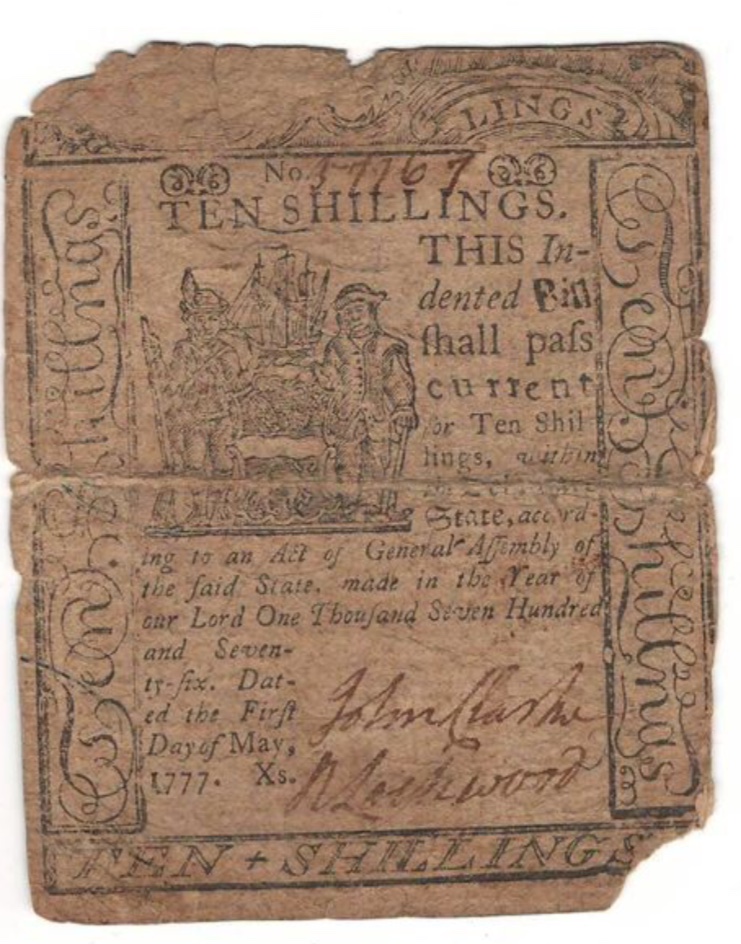 LINGS
No. 57767
TEN SHILLINGS.
THIS In-
dented Bill
ſhall paſs
current
for Ten Shil
lings, within
State, accord-
ing to an Act of General Aſſembly of
the ſaid State, made in the Year of
our Lord One Thouſand Seven Hundred
and Seven-
ty-ſix. Dat-
ed the Firſt
Day of May,
1777. Xs.
John Clarke
Shillings
Ten
Ten
Shillings
TEN + SHILLINGS